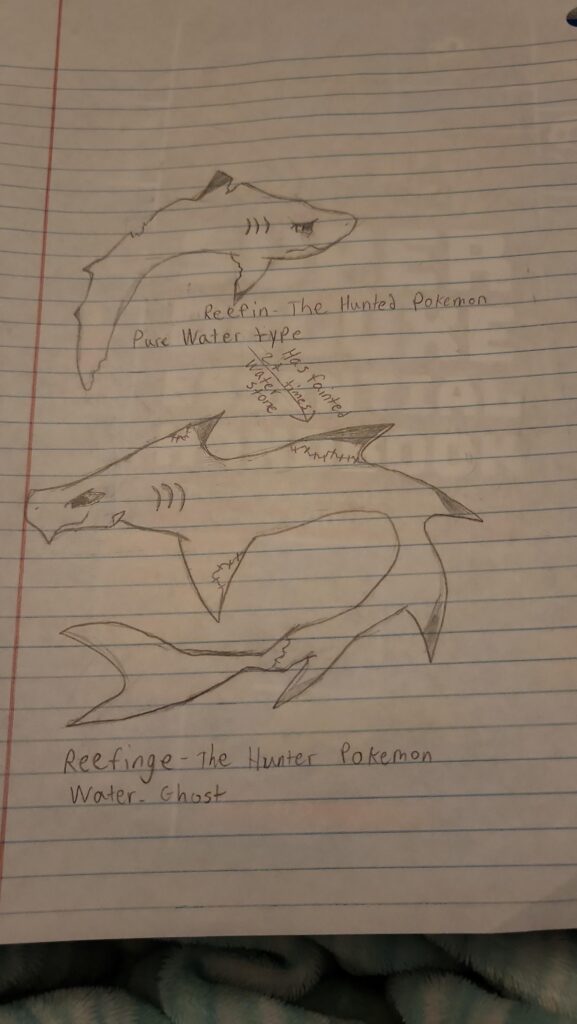 Reefin - The Hunted Pokemon
Pure Water type
Has fainted
2+ times
Water
stone
Reefinge - The Hunter Pokemon
Water - Ghost